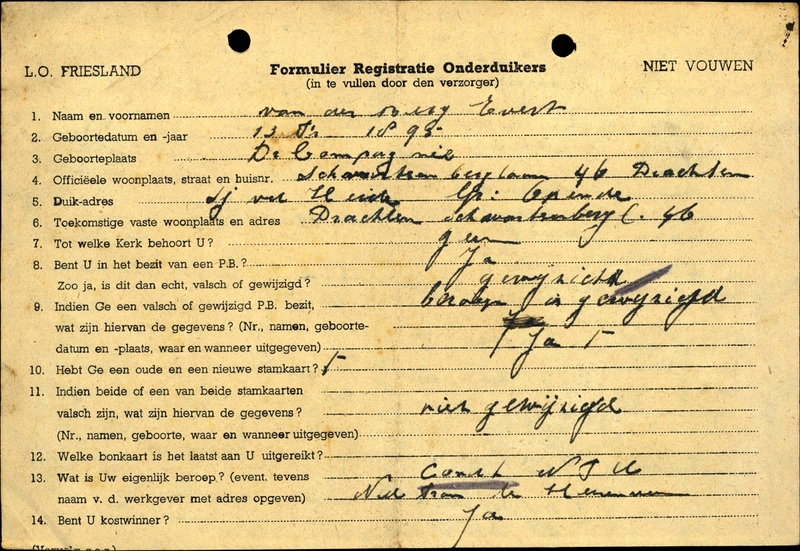 L.O. FRIESLAND
Formulier Registratie Onderduikers
NIET VOUWEN
(in te vullen door den verzorger)
1. Naam en voornamen van der Berg Evert
2. Geboortedatum en -jaar 13 1895
3. Geboorteplaats De Compagnie
4. Officiëele woonplaats, straat en huisnr. 46 Drachten
5. Duik-adres Opende
6. Toekomstige vaste woonplaats en adres Drachten 46
7. Tot welke Kerk behoort U? geen
8. Bent U in het bezit van een P.B.? Ja
Zoo ja, is dit dan echt, valsch of gewijzigd? gewijzicht
9. Indien Ge een valsch of gewijzigd P.B. bezit, beroep is gewijzigd
wat zijn hiervan de gegevens? (Nr., namen, geboorte-
datum en -plaats, waar en wanneer uitgegeven) Ja
10. Hebt Ge een oude en een nieuwe stamkaart?
11. Indien beide of een van beide stamkaarten
valsch zijn, wat zijn hiervan de gegevens? niet gewijzigd
(Nr., namen, geboorte, waar en wanneer uitgegeven)
12. Welke bonkaart is het laatst aan U uitgereikt?
13. Wat is Uw eigenlijk beroep? (event. tevens
naam v. d. werkgever met adres opgeven) Ned Tram
14. Bent U kostwinner? Ja